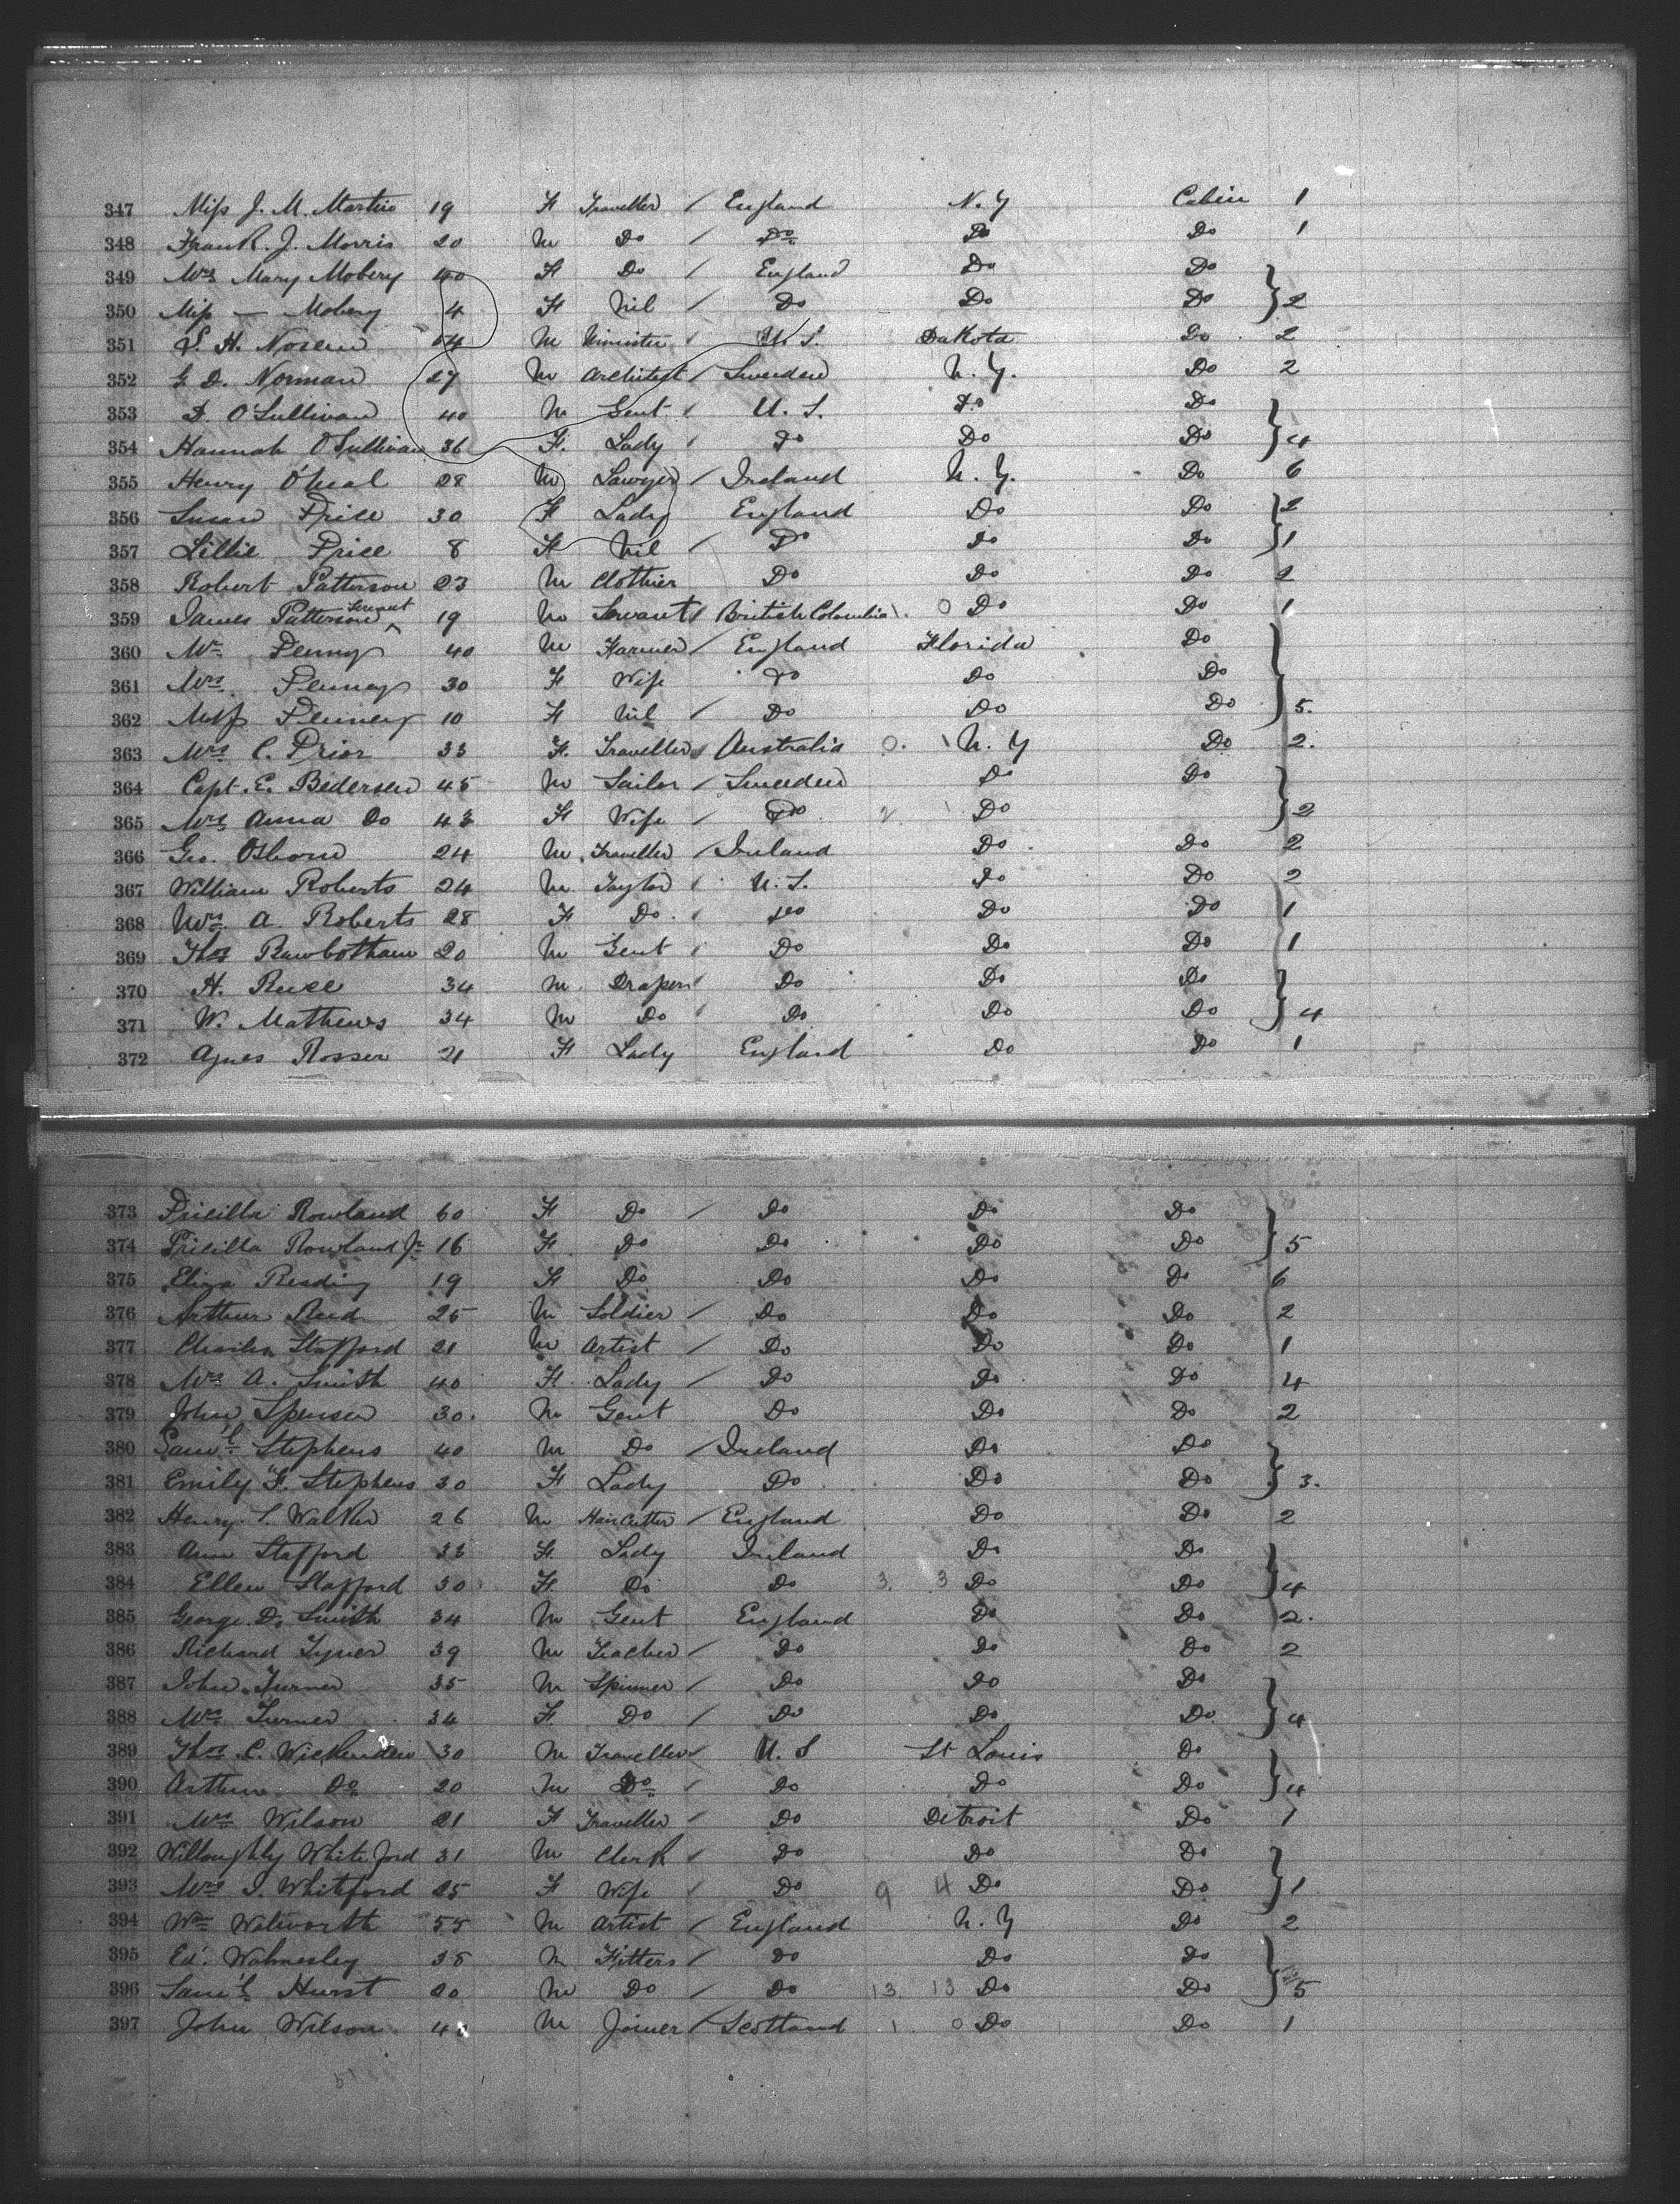 347 Miss J. M. Martin 19 F Traveller / England N. Y Cabin 1
348 Frank. J. Morris 20 M Do / Do Do Do 1
349 Mrs Mary Mobery 40 F Do / England Do Do
350 Miss — Mobery 4 F Nil / Do Do Do } 2
351 S. H. Nosen M Minister / U. S. Dakota Do 2
352 G. D. Norman 27 M Architect / Sweeden N. Y. Do 2
353 D. O'Sullivan 40 M Gent / U. S. Do Do
354 Hannah O'Sullivan 36 F. Lady / Do Do Do } 4
355 Henry O'Neal 28 M Lawyer / Ireland N. Y. Do 6
356 Susan Price 30 F Lady England Do Do 2
357 Lillie Price 8 F Nil Do Do Do } 1
358 Robert Patterson 23 M Clothier Do Do Do 2
359 James Patterson Servant 19 M Servant / British Colombia \ 0 Do Do 1
360 Mr Penney 40 M Farmer / England Florida Do
361 Mrs Penney 30 F Wife Do Do Do
362 Miss Penney 10 F Nil / Do Do Do } 5.
363 Mrs C. Prior 33 F. Traveller / Australia 0. \ N. Y Do 2.
364 Capt. E. Bedersen 45 M Sailor / Sweeden Do Do
365 Mrs Anna Do 43 F Wife / Do 2 1 Do } 2
366 Geo. Osborn 24 M. Traveller / Ireland Do Do 2
367 William Roberts 24 M. Taylor / U. S. Do Do 2
368 Mrs A Roberts 28 F Do / Do Do Do 1
369 Thos Rawbotham 20 M Gent / Do Do Do 1
370 H. Ruse 34 M. Draper / Do Do Do
371 W. Mathews 34 M Do / Do Do Do } 4
372 Agnes Rosser 21 F Lady England Do Do 1
373 Pricilla Rowland 60 F Do / Do Do Do
374 Pricilla Rowland Jr 16 F. Do Do Do Do } 5
375 Eliza Reading 19 F Do Do Do Do 6
376 Arthur Reed 25 M Soldier / Do Do Do 2
377 Charles Stafford 21 M Artist / Do Do Do 1
378 Mrs A. Smith 40 F. Lady / Do Do Do 4
379 John Spenser 30. M Gent Do Do Do 2
380 Saml Stephens 40 M Do / Ireland Do Do
381 Emily F. Stephens 30 F Lady Do Do Do } 3.
382 Henry S. Walker 26 M Hair Cutter / England Do Do 2
383 Ann Stafford 33 F. Lady Ireland Do Do
384 Ellen Stafford 30 F. Do Do 3. 3 Do Do } 4
385 George D. Smith 34 M Gent England Do Do 2.
386 Richard Tyner 39 M Teacher / Do Do Do 2
387 John Turner 35 M Spinner / Do Do Do
388 Mrs Turner 34 F. Do / Do Do Do } 4
389 Thos C. Wickenden 30 M Traveller / U. S St Louis Do
390 Arthur Do 20 M Do / Do Do Do } 4
391 Mrs Wilson 21 F Traveller / Do Detroit Do 1
392 Willoughby Whiteford 31 M Clerk / Do Do Do
393 Mrs I. Whiteford 25 F Wife / Do 9 4 Do Do } 1
394 Wm Walworth 55 M Artist / England N. Y Do 2
395 Ed. Walmesley 35 M Fitters / Do Do Do
396 Saml Hurst 20 M Do / Do 13. 13 Do Do } 5
397 John Wilson M Joiner / Scotland 1. 0 Do Do 1